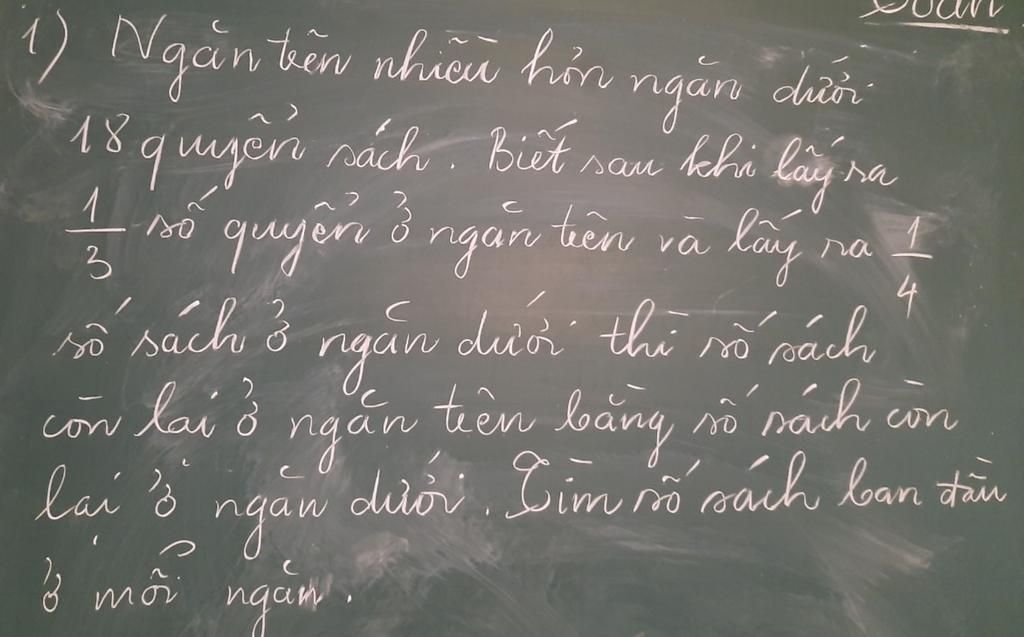 Toán
1) Ngăn trên nhiều hơn ngăn dưới
18 quyển sách. Biết sau khi lấy ra
1/3 số quyển ở ngăn trên và lấy ra 1/4
số sách ở ngăn dưới thì số sách
còn lại ở ngăn trên bằng số sách còn
lại ở ngăn dưới. Tìm số sách ban đầu
ở mỗi ngăn.